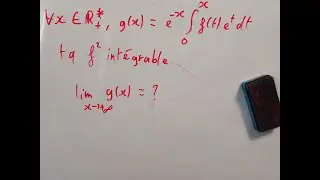 ∀x ∈ ℝ₊*, g(x) = e^{-x} ∫₀ˣ f(t) e^t dt
tq f² intégrable
lim_{x→+∞} g(x) = ?